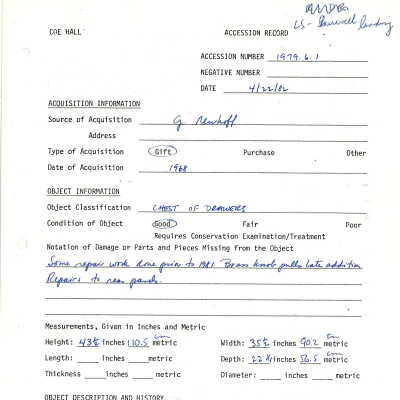 LS - Stairwell landing
COE HALL ACCESSION RECORD
ACCESSION NUMBER 1979.6.1
NEGATIVE NUMBER
DATE 4/22/82
ACQUISITION INFORMATION
Source of Acquisition G Newhoff
Address
Type of Acquisition Gift Purchase Other
Date of Acquisition 1968
OBJECT INFORMATION
Object Classification CHEST OF DRAWERS
Condition of Object Good Fair Poor
Requires Conservation Examination/Treatment
Notation of Damage or Parts and Pieces Missing from the Object
Some repair work done prior to 1981. Brass knob pulls late addition
Repairs to rear panels.
Measurements, Given in Inches and Metric
Height: 43½ inches 110.5 cm metric Width: 35½ inches 90.2 cm metric
Length: inches metric Depth: 22¼ inches 56.5 cm metric
Thickness inches metric Diameter: inches metric
OBJECT DESCRIPTION AND HISTORY